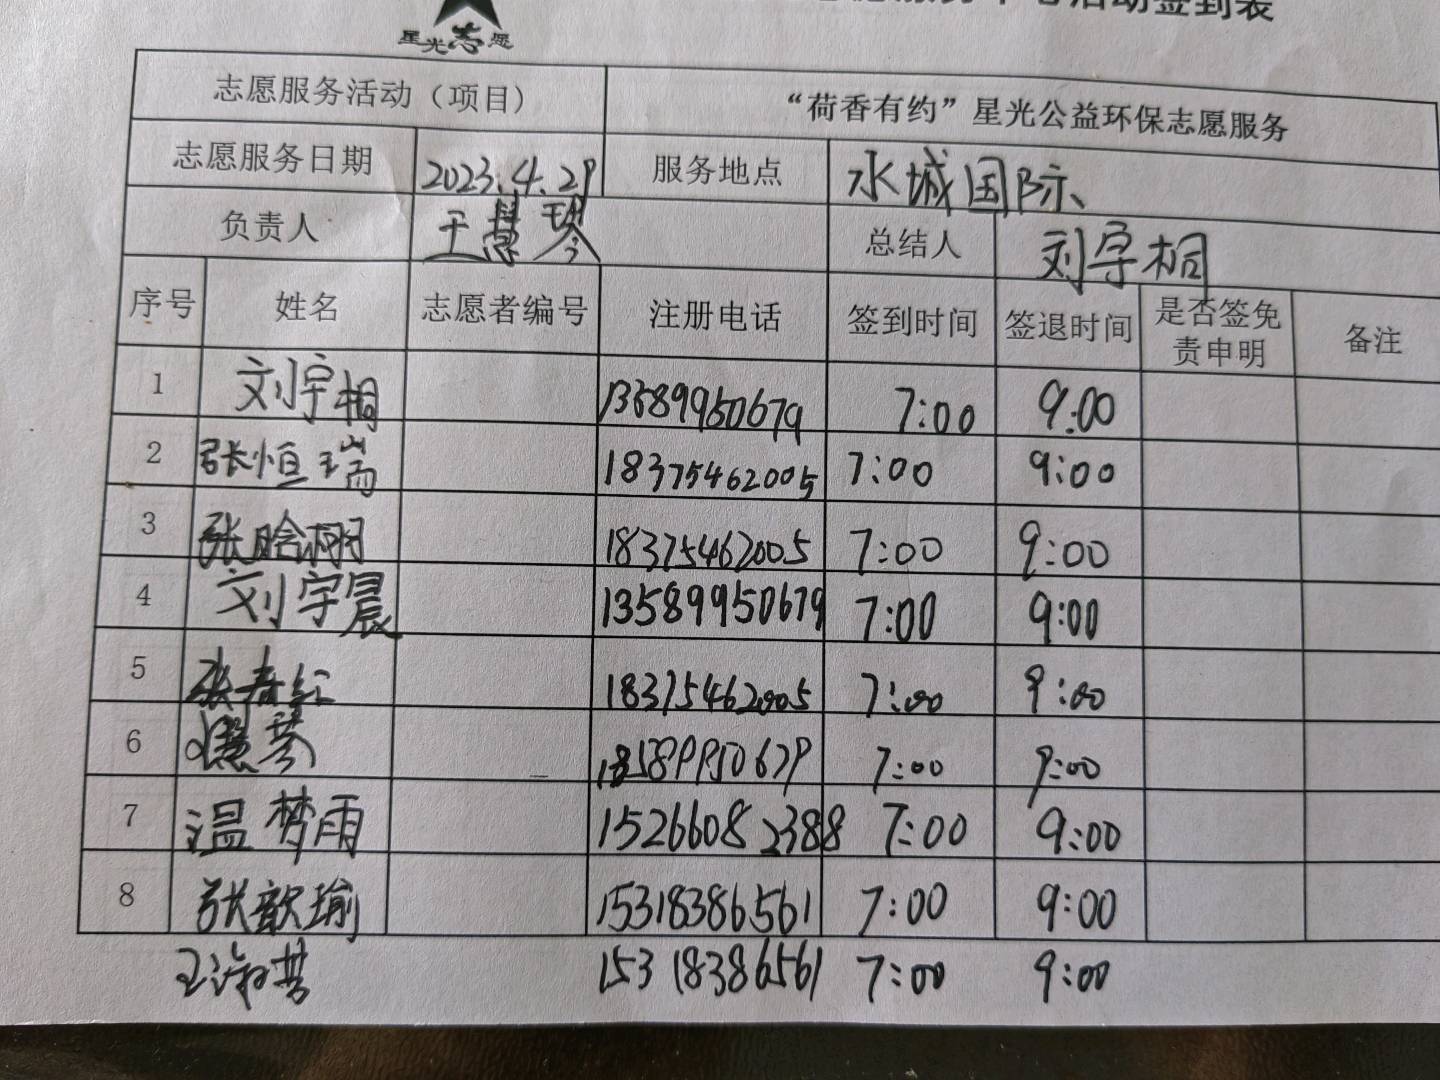 活动签到表
星光志愿
志愿服务活动（项目） “荷香有约”星光公益环保志愿服务
志愿服务日期 2023.4.29 服务地点 水城国际、
负责人 王慧琴 总结人 刘宇桐
序号 姓名 志愿者编号 注册电话 签到时间 签退时间 是否签免责申明 备注
1 刘宇桐 13589950679 7:00 9:00
2 张恒瑞 18375462005 7:00 9:00
3 张晗 18375462005 7:00 9:00
4 刘宇晨 13589950679 7:00 9:00
5 张春红 18375462005 7:00 9:00
6 王慧琴 13589950679 7:00 9:00
7 温梦雨 15266082388 7:00 9:00
8 张歆瑜 15318386561 7:00 9:00
王淑芸 15318386561 7:00 9:00